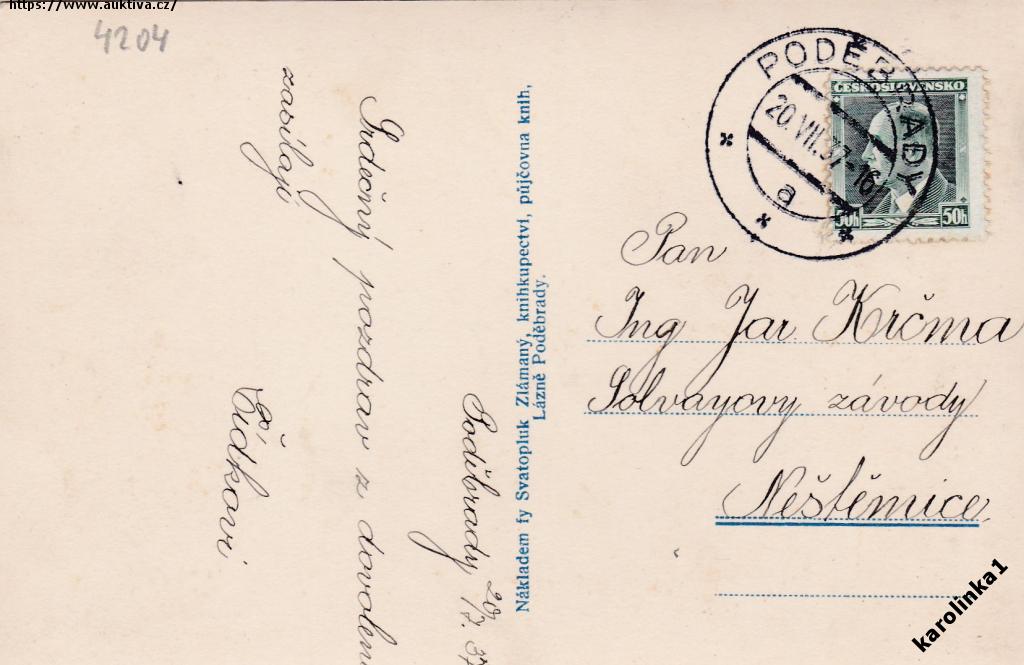 https://www.auktiva.cz/
4204
Poděbrady 20/7. 37
Srdečný pozdrav z dovolen
zasílají
Čídkovi
Nákladem fy Svatopluk Zlámaný, knihkupectví, půjčovna knih,
Lázně Poděbrady.
PODĚBRADY
20.VII.37-16
a
ČESKOSLOVENSKO
50h 50h
Pan
Ing Jar Krčma
Solvayovy závody
Neštěmice
karolinka1